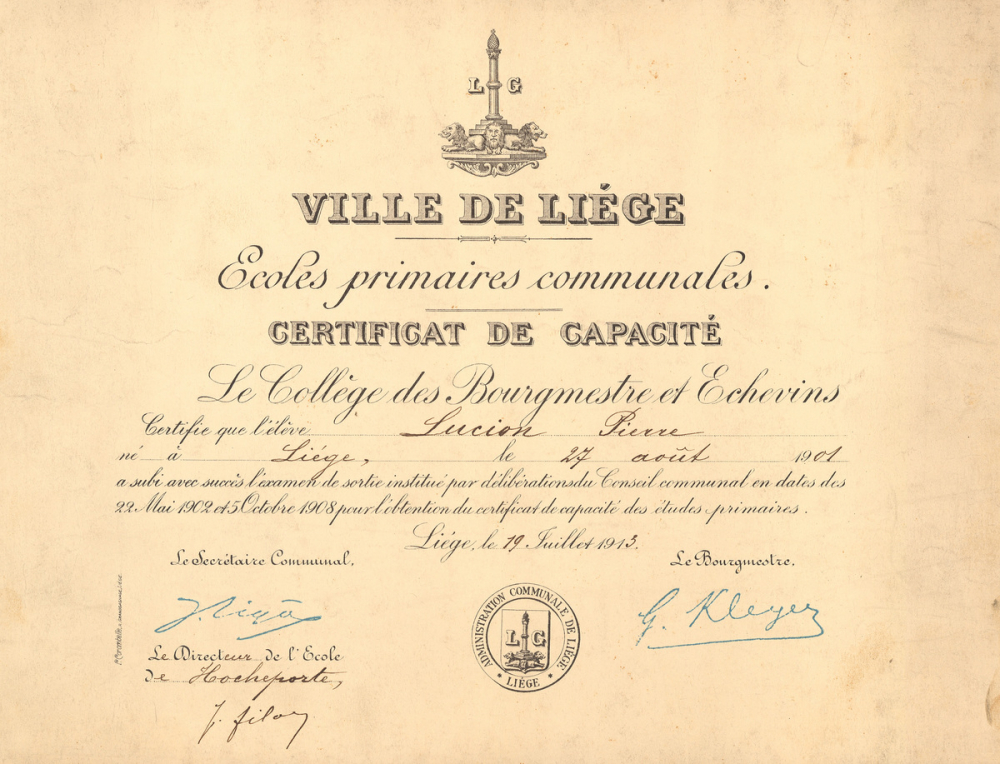 L G
VILLE DE LIÉGE
Ecoles primaires communales.
CERTIFICAT DE CAPACITÉ
Le Collège des Bourgmestre et Echevins
Certifie que l'élève Lucion Pierre
né à Liége, le 27 août 1901
a subi avec succès l'examen de sortie institué par délibérations du Conseil communal en dates des
22 Mai 1902 et 5 Octobre 1908 pour l'obtention du certificat de capacité des études primaires.
Liége, le 19 Juillet 1913.
Le Secrétaire Communal, Le Bourgmestre.
G. Kleyer
ADMINISTRATION COMMUNALE DE LIÉGE
L G
* LIÉGE *
Le Directeur de l'Ecole
de Hocheporte,